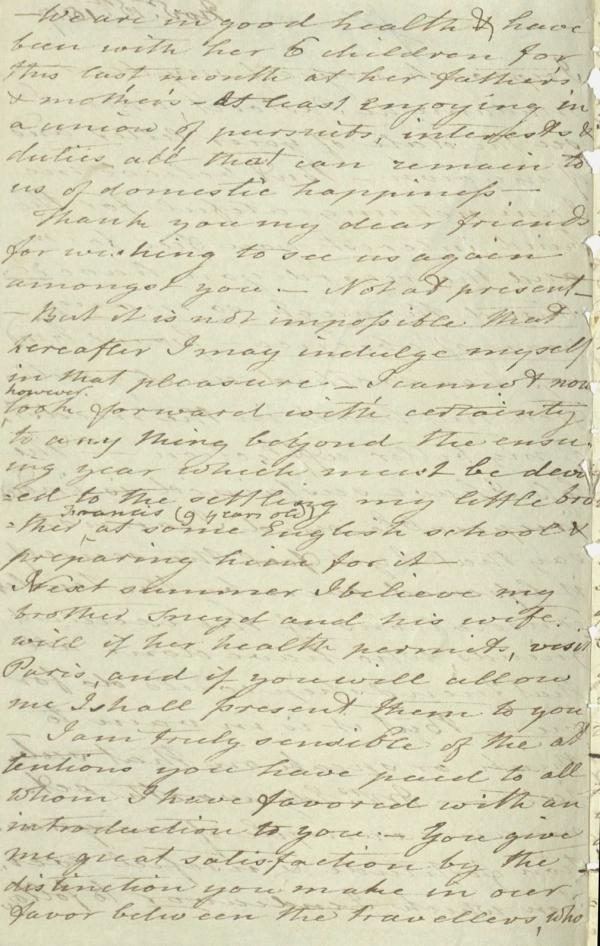 – We are in good health & have
been with her 6 children for
this last month at her father's
& mother's – at least enjoying in
a union of pursuits, interests &
duties all that can remain to
us of domestic happiness –
Thank you my dear friends
for wishing to see us again
amongst you. – Not at present –
– But it is not impossible that
hereafter I may indulge myself
in that pleasure – I cannot now
however
look forward with certainty
to any thing beyond the ensu-
ing year which must be devo
=ed to the settling my little bro
Francis (9 years old)
=ther, at some English school &
preparing him for it –
Next summer I believe my
brother Sneyd and his wife
will if her health permits, visit
Paris, and if you will allow
me I shall present them to you
– I am truly sensible of the at
tentions you have paid to all
whom I have favored with an
introduction to you. – You give
me great satisfaction by the
distinction you make in our
favor between the travellers, who